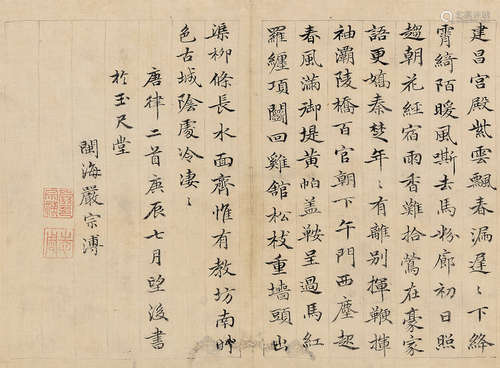 建昌宮殿紫雲飄春漏遲〻下絳
霄綺陌暖風嘶去馬粉廊初日照
趨朝花經宿雨香難拾鶯在豪家
語更嬌秦楚年〻有離別揮鞭揮
袖灞陵橋百官朝下午門西塵起
春風滿御堤黃帕蓋鞍呈過馬紅
羅纏項鬭回雞舘松枝重墻頭出
渠柳條長水面齊惟有教坊南畔
色古城陰處冷淒〻
唐律二首庚辰七月望後書
於玉尺堂
閩海嚴宗溥